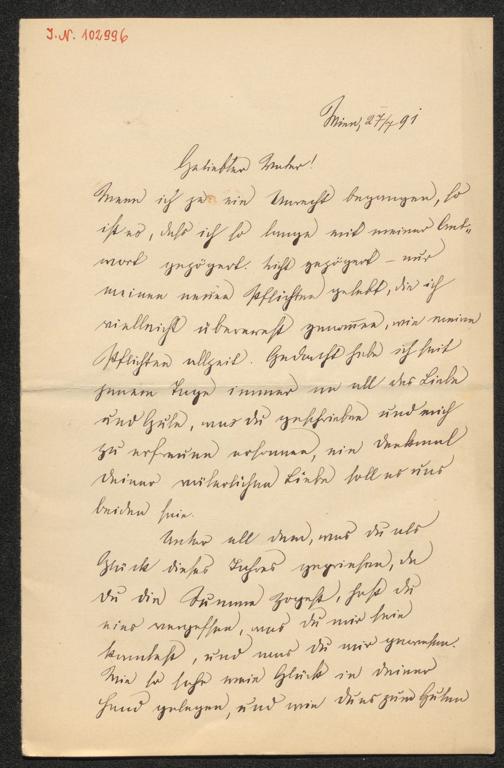 J.N. 102996
Wien, 27/4 91
Geliebter Vater!
Wenn ich je ein Unrecht begangen, so
ist es, dass ich so lange mit meiner Ant-
wort gezögert. Nicht gezögert – nur
meinen neuen Pflichten gelebt, die ich
vielleicht überernst genommen, wie meine
Pflichten allzeit. Gedacht habe ich seit
jenem Tage immer an all das Liebe
und Gute, was du geschrieben und mich
zu erfreuen ersonnen, ein Denkmal
deiner väterlichen Liebe soll es uns
beiden sein.
Unter all dem, was du als
Glück dieses Jahres gepriesen, da
du die Summe zogest, hast du
eins vergessen, was du mir sein
konntest, und was du mir gewesen.
Wie so sehr mein Glück in deiner
Hand gelegen, und wie du's zum Guten